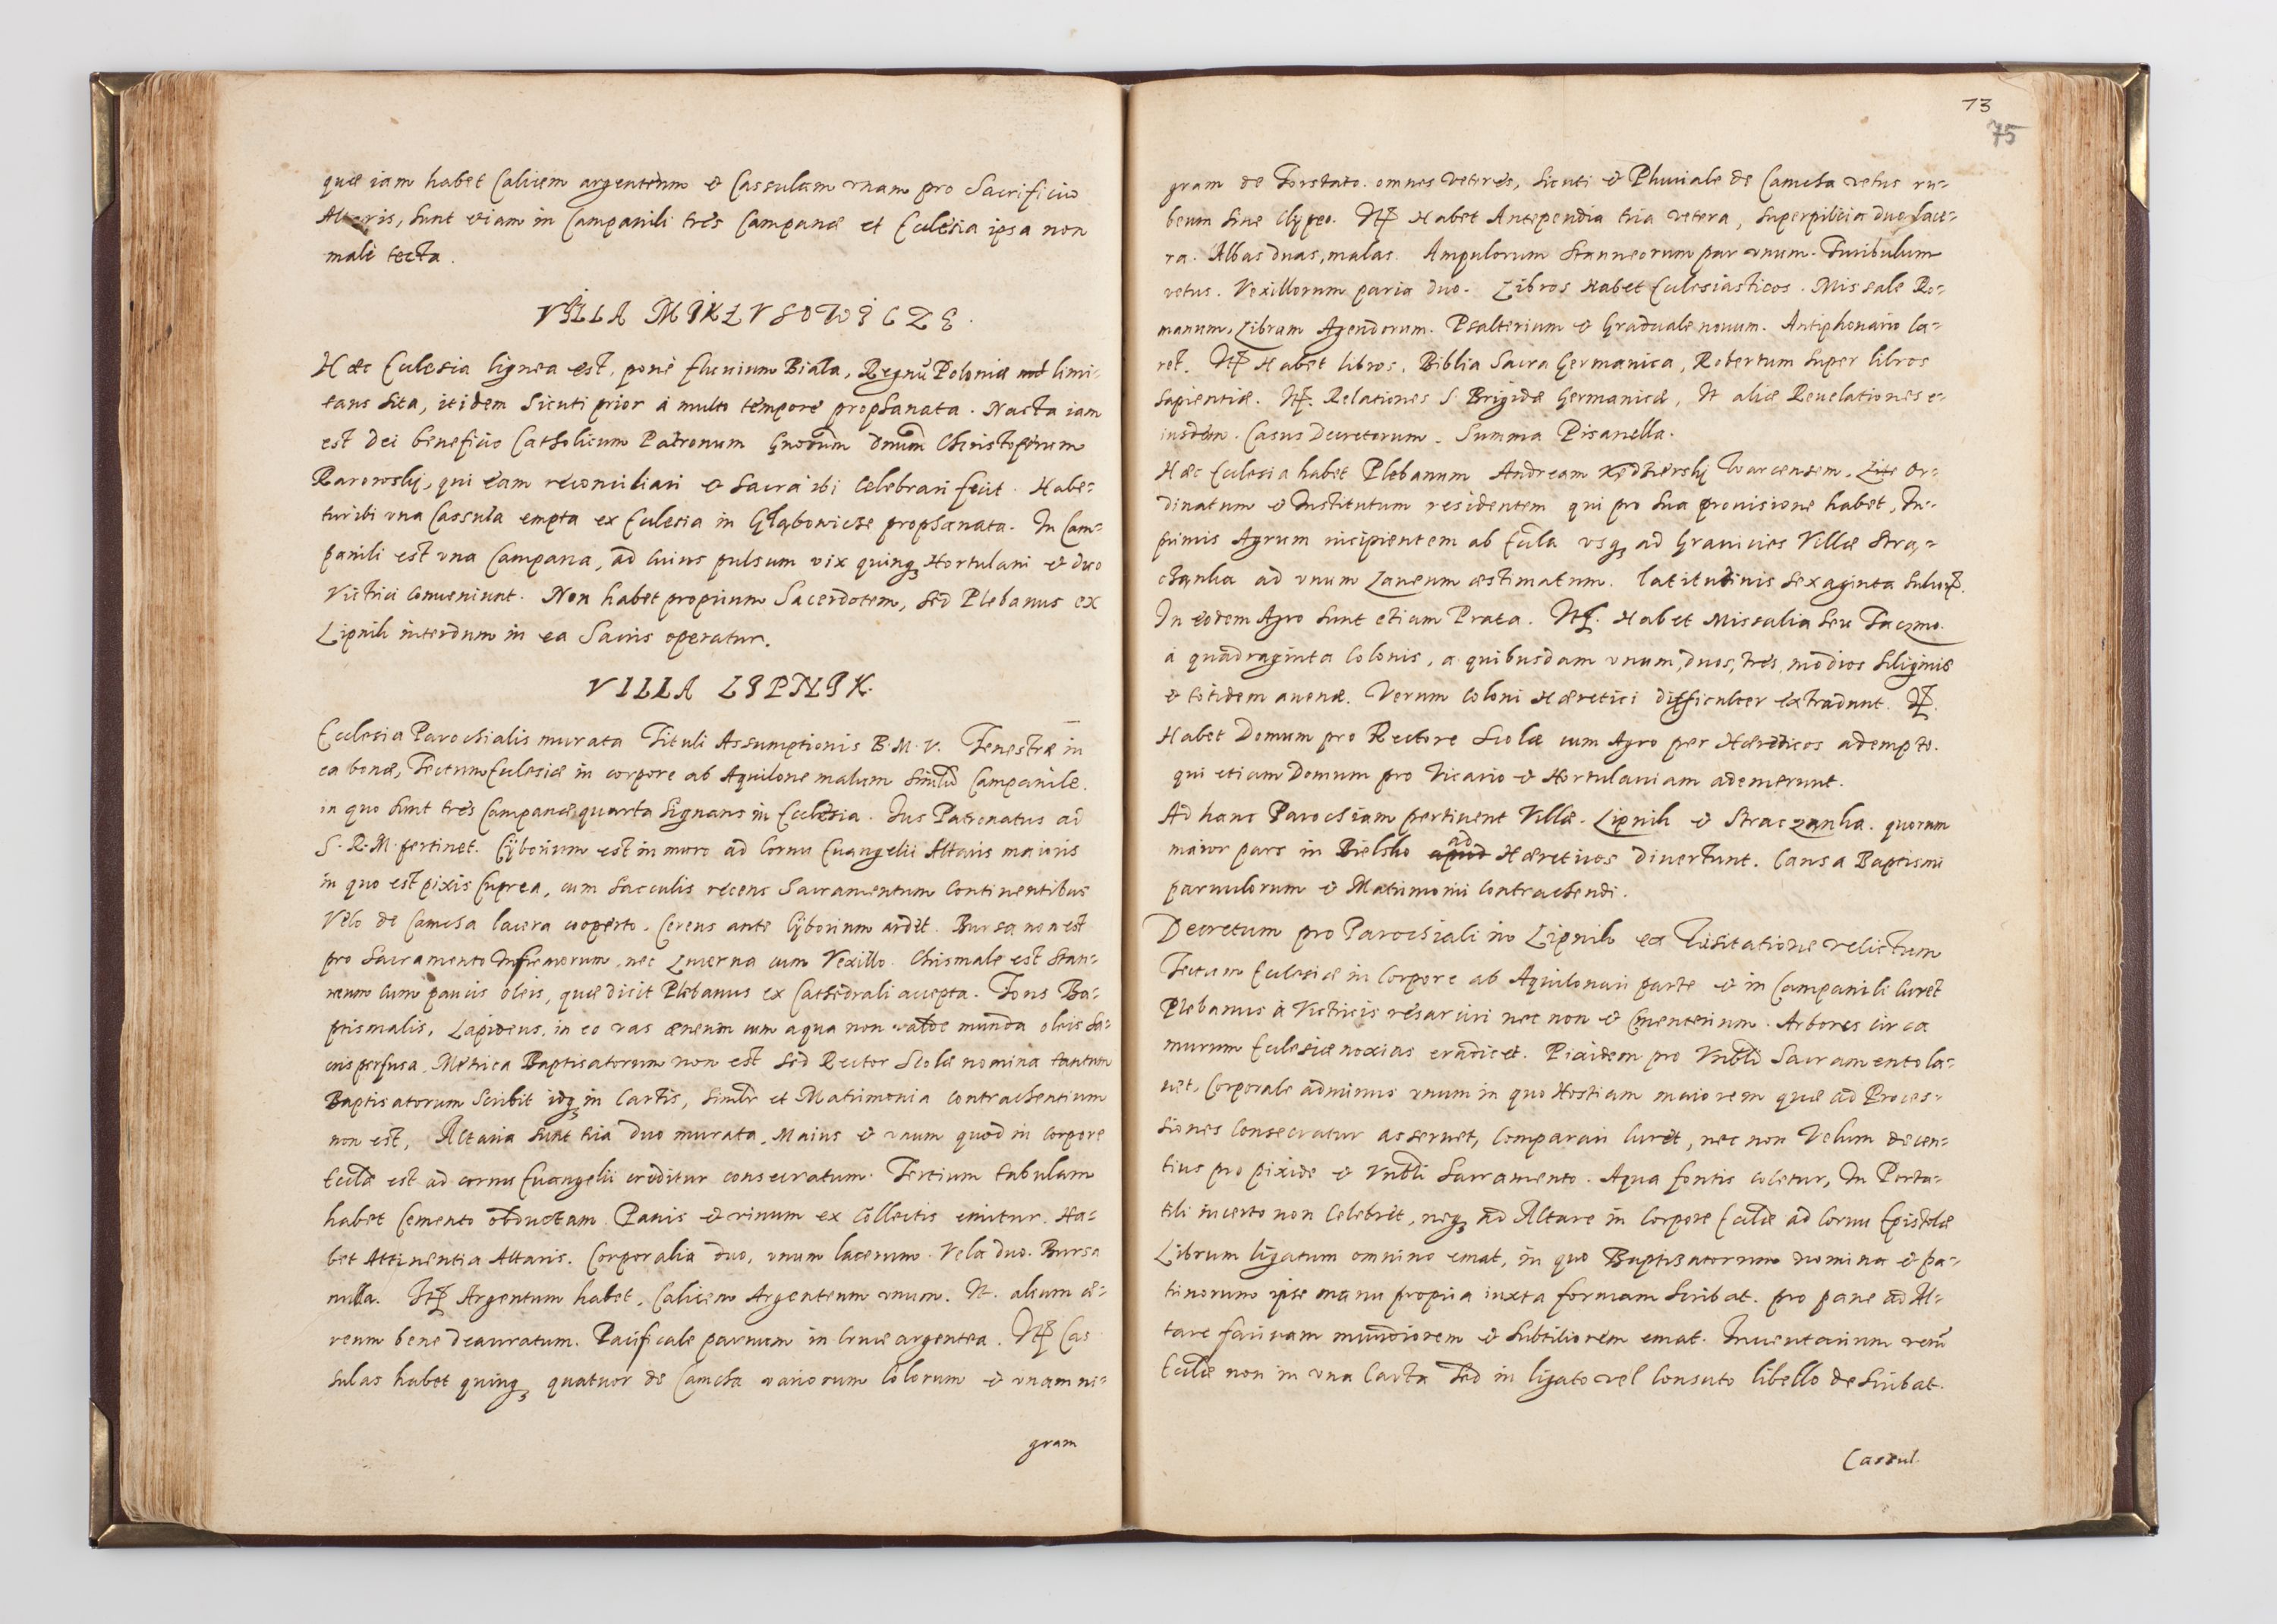 quæ iam habet Calicem argenteum & Cassulam vnam pro Sacrificio
Altaris, sunt etiam in Campanili tres Campanæ et Ecclesia ipsa non
male tecta.
VILLA MIKŁVSOWICZE.
Hæc Ecclesia lignea est, pone fluuium Biala, Regnū Poloniæ limi-
tans sita, itidem sicuti prior a multo tempore prophanata. Nacta iam
est Dei beneficio Catholicum Patronum Gnosum Dnum Christoferum
Rarowsky, qui eam reconciliari & Sacra ibi celebrari fecit. Habe-
tur ibi vna Cassula empta ex Ecclesia in Głąbowicze prophanata. In Cam-
panili est vna Campana, ad cuius pulsum vix quinq₃ Hortulani & duo
Victrici conueniunt. Non habet proprium Sacerdotem, sed Plebanus ex
Lipnik interdum in ea Sacris operatur.
VILLA LIPNIK.
Ecclesia Parochialis murata Tituli Assumptionis B. M. V. Fenestræ in
ea bonæ, Tectum Ecclesiæ in corpore ab Aquilone malum simul Campanile.
in quo sunt tres Campanæ quarta signans in Ecclesia. Jus Patronatus ad
S. R. M. pertinet. Cÿborium est in muro ad Cornu Euangelii Altaris maioris
in quo est pixis Cuprea, cum sacculis recens Sacramentum Continentibus
Velo de Camcha lacera cooperto. Cereus ante Cÿborium ardet. Bursa non est
pro Sacramento Infirmorum, nec Lucerna cum Vexillo. Chrismale est Stan-
neum cum paucis oleis, quæ dicit Plebanus ex Cathedrali accepta. Fons Ba-
ptismalis, Lapideus, in eo vas æneum cum aqua non valde munda oleis sa-
cris perfusa. Metrica Baptisatorum non est sed Rector Scolæ nomina tantum
Baptisatorum scribit idq₃ in Cartis, simlr et Matrimonia contrachentium
non est, Altaria sunt tria duo murata, Maius & vnum quod in corpore
Eccliæ est ad cornu Euangelii creditur consecratum. Tertium tabulam
habet Cemento obductam. Panis & vinum ex Collectis emitur. Ha-
bet Attinentia Altaris. Corporalia duo, vnum lacerum. Vela duo. Bursa
nulla. Itē Argentum habet, Calicem Argenteum vnum. It. alium æ-
reum bene deauratum. Pacificale paruum in Cruce argentea. Itē Cas
sulas habet quinq₃ quatuor de Camcha variorum Colorum & vnam ni-
gram
73
75
gram de Forstato. omnes veteres, sicuti & Pluuiale de Camcha vetus ru-
beum sine clypeo. Itē Habet Antependia tria vetera, superpilicia duo lace-
ra. Albas duas, malas. Ampulorum stanneorum par vnum. Turibulum
vetus. Vexillorum paria duo. Libros Habet Ecclesiasticos. Missale Ro-
manum, Librum Agendorum. Psalterium & Graduale nouum. Antiphonario ca-
ret. Itē Habet libros, Biblia Sacra Germanica, Robertum super libros
Sapientiæ. Itē. Relationes S. Brigidæ Germanicæ, It aliæ Reuelationes e-
iusdem. Casus Decretorum. Summa Pisanella.
Hæc Ecclesia habet Plebanum Andream Kędzierskÿ Warcensem. Or-
dinatum & Institutum residentem qui pro sua prouisione habet, In-
primis Agrum incipientem ab Eccla vsq₃ ad Granicies Villæ Stra-
cžanka ad vnum Laneum æstimatum. latitudinis sexaginta sulcor.
In eodem Agro sunt etiam Prata. Itē. Habet Missalia seu Taczmo.
a quadraginta Colonis, a quibusdam vnum, duos, tres, modios siliginis
& totidem auenæ. Verum Coloni Hæretici difficulter extradunt. Itē.
Habet Domum pro Rectore Scolæ cum Agro per Hæreticos adempto.
qui etiam Domum pro Vicario & Hortulaniam ademerunt.
Ad hanc Parochiam pertinent Villæ. Lipnik & Straczanka. quorum
maior pars in Bielsko apud ad Hæreticos diuertunt. Causa Baptismi
paruulorum & Matrimonii contrachendi.
Decretum pro Parochiali in Lipnik ex Visitatione relictum
Tectum Ecclesiæ in Corpore ab Aquilonari parte & in Campanili Curet
Plebanus à Victricis resarciri nec non & Cmenterium. Arbores circa
murum Ecclesiæ noxias eradicet. Pixidem pro Vnbli Sacramento la-
uet, Corporale adminus vnum in quo Hostiam maiorem quæ ad Proces-
siones Consecratur asseruet, Comparari curet, nec non Velum decen-
tius pro pixide & Vnbli Sacramento. Aqua fontis coletur, In Porta-
tili incerto non Celebret, neq₃ ad Altare in corpore Eccliæ ad Cornu Epistolæ
Librum ligatum omnino emat, in quo Baptisatorum nomina & pa-
trinorum ipse manu propria iuxta formam scribat. pro pane ad Al-
tare farinam mundiorem & subtiliorem emat. Inuentarium rerū
Eccliæ non in vna Carta sed in ligato vel Consuto libello describat.
Cassul.